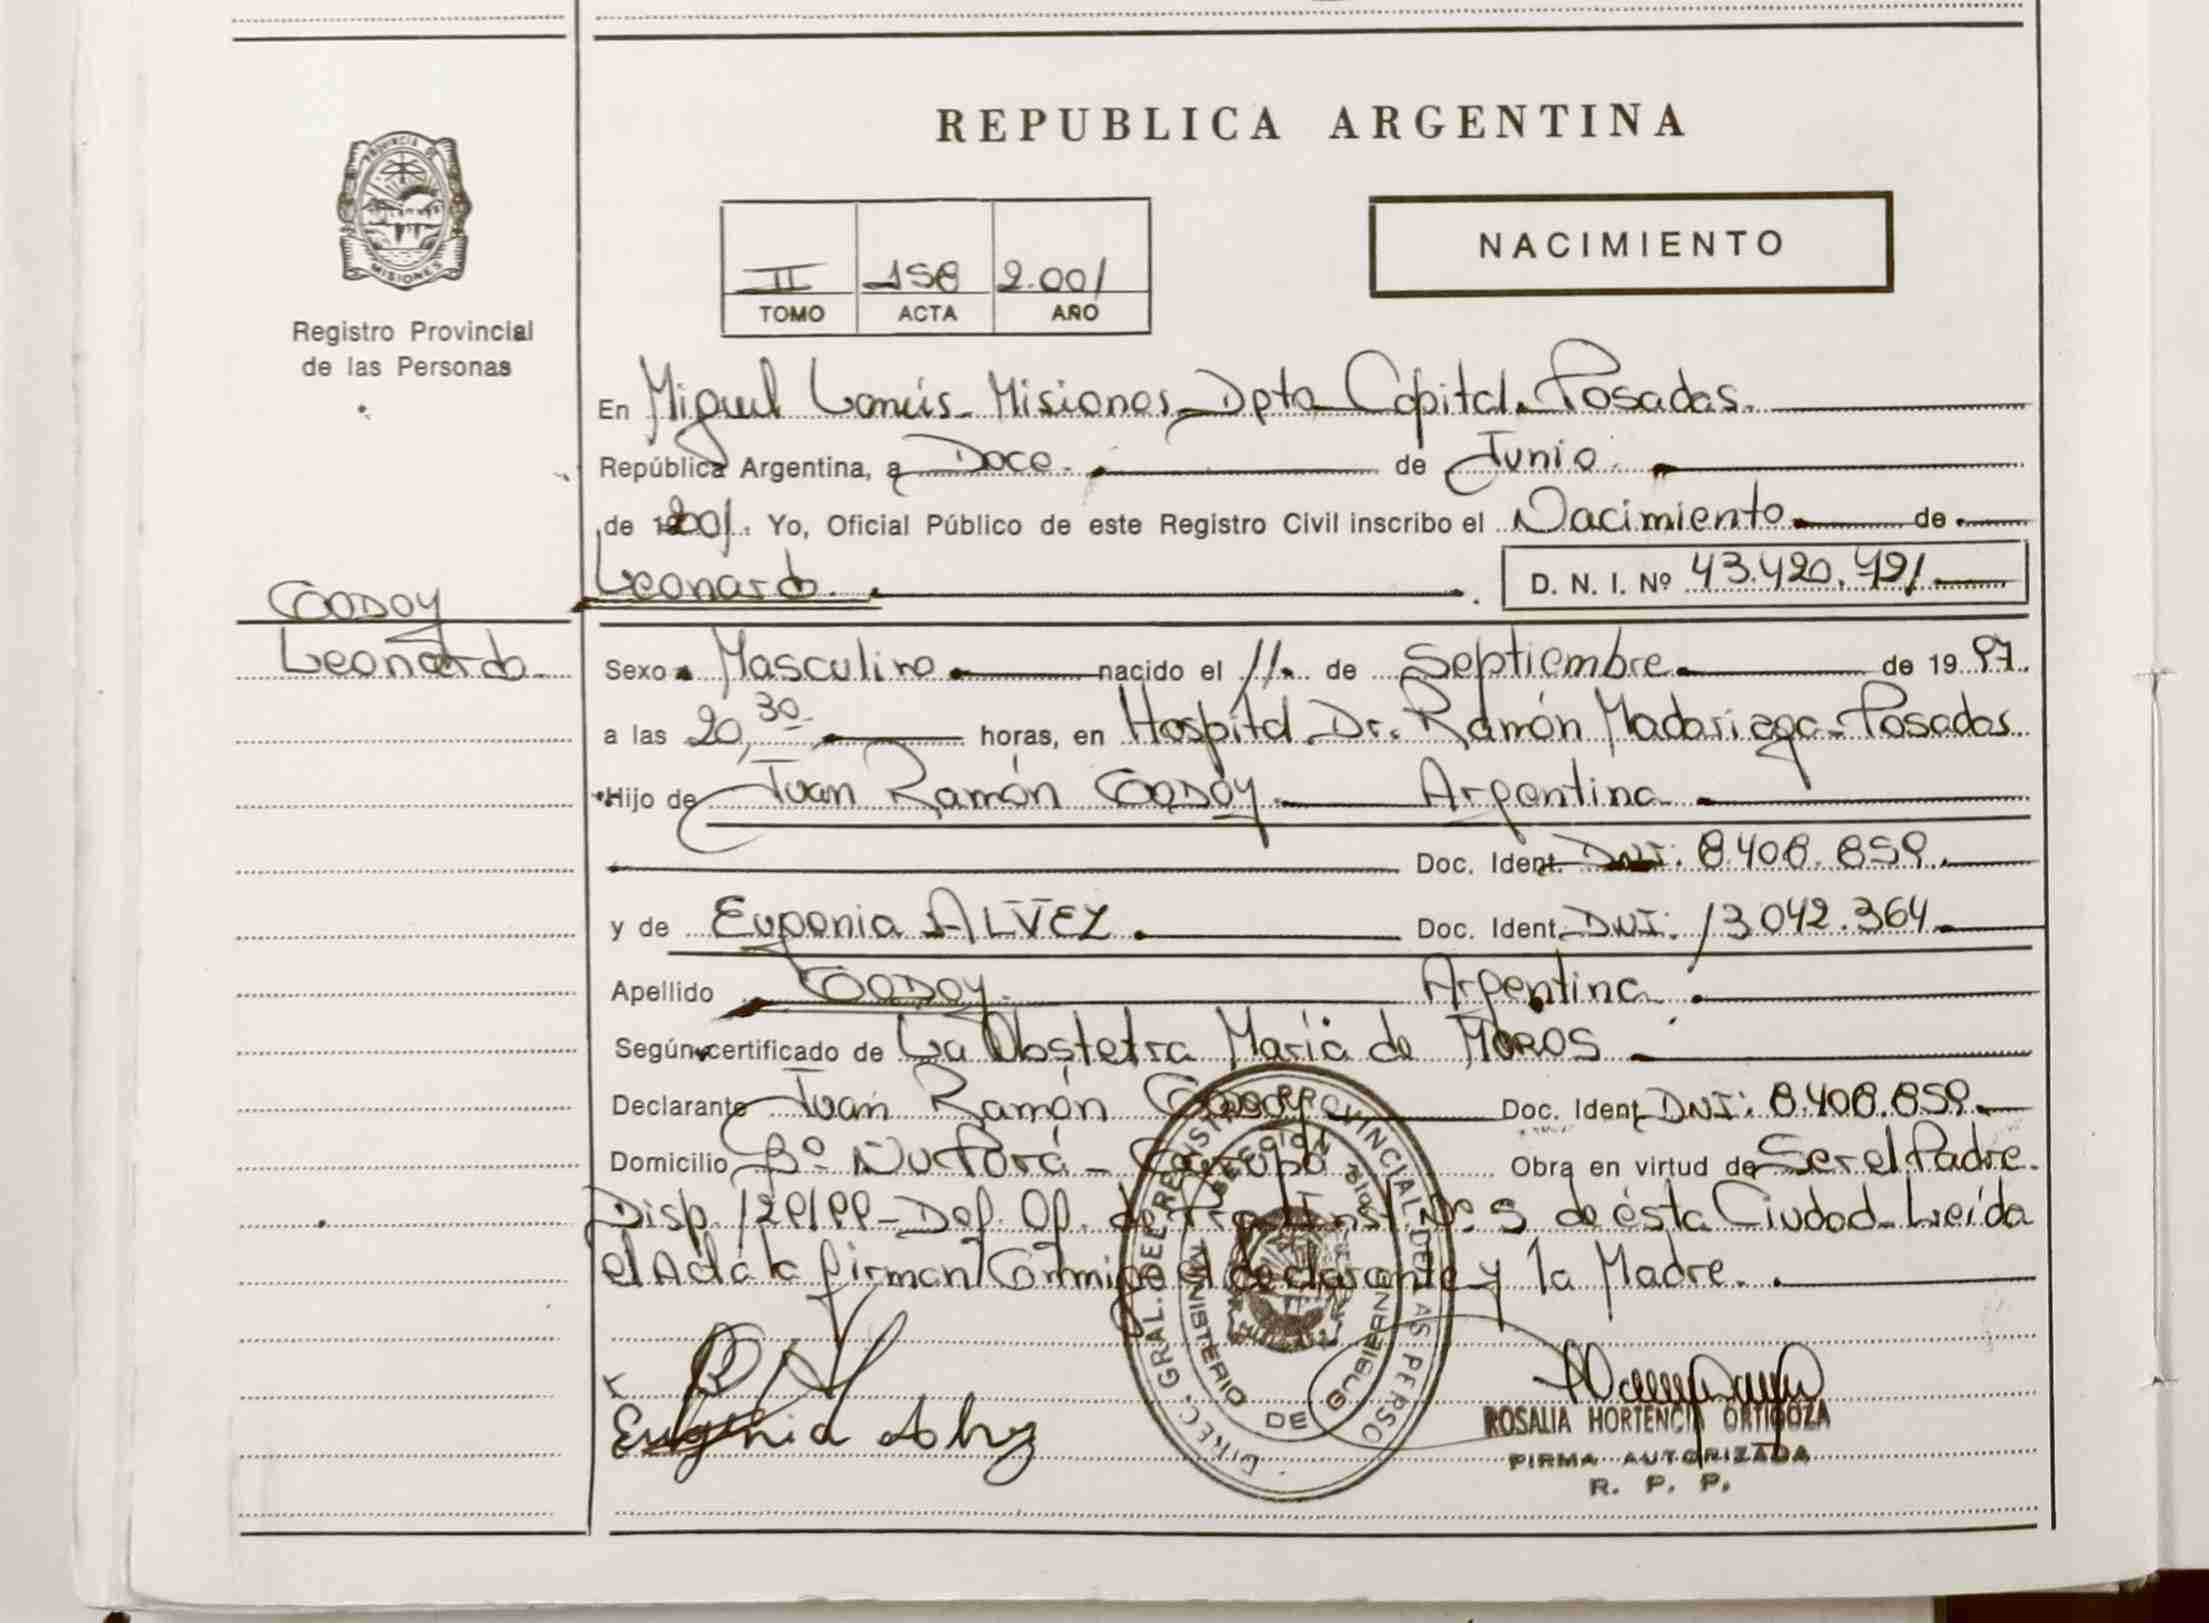 REPUBLICA ARGENTINA
PROVINCIA DE
MISIONES
Registro Provincial
de las Personas
NACIMIENTO
II 158 2.001
TOMO ACTA AÑO
En Miguel Lanús Misiones Dpto Capital. Posadas.
República Argentina, a Doce. de Junio.
de 2001. Yo, Oficial Público de este Registro Civil inscribo el Nacimiento de
Leonardo. D. N. I. Nº 43.420.421
GODOY
Leonardo.
Sexo Masculino nacido el 11. de Septiembre de 1997.
a las 20,30 horas, en Hospital Dr. Ramón Madariaga - Posadas
Hijo de Juan Ramón GODOY. Argentina
Doc. Ident. DNI. 8.408.859.
y de Eugenia ALVEZ. Doc. Ident. DNI: 13.042.364
Apellido GODOY. Argentina
Según certificado de La Obstetra María de MOROS
Declarante Juan Ramón Godoy Doc. Ident. DNI: 8.408.859.
Domicilio Bº Ñu Porá - Garupá Obra en virtud de Ser el Padre.
Disp. Def. Of. de Inst. Nº 5 de ésta Ciudad - Leída
el Acta la firman Conmigo el declarante y la Madre.
Eugenia Alvez
DIREC. GRAL. DEL REGISTRO PROVINCIAL DE LAS PERSO
MINISTERIO DE GOBIERNO
ROSALIA HORTENCIA ORTIGOZA
FIRMA AUTORIZADA
R. P. P.